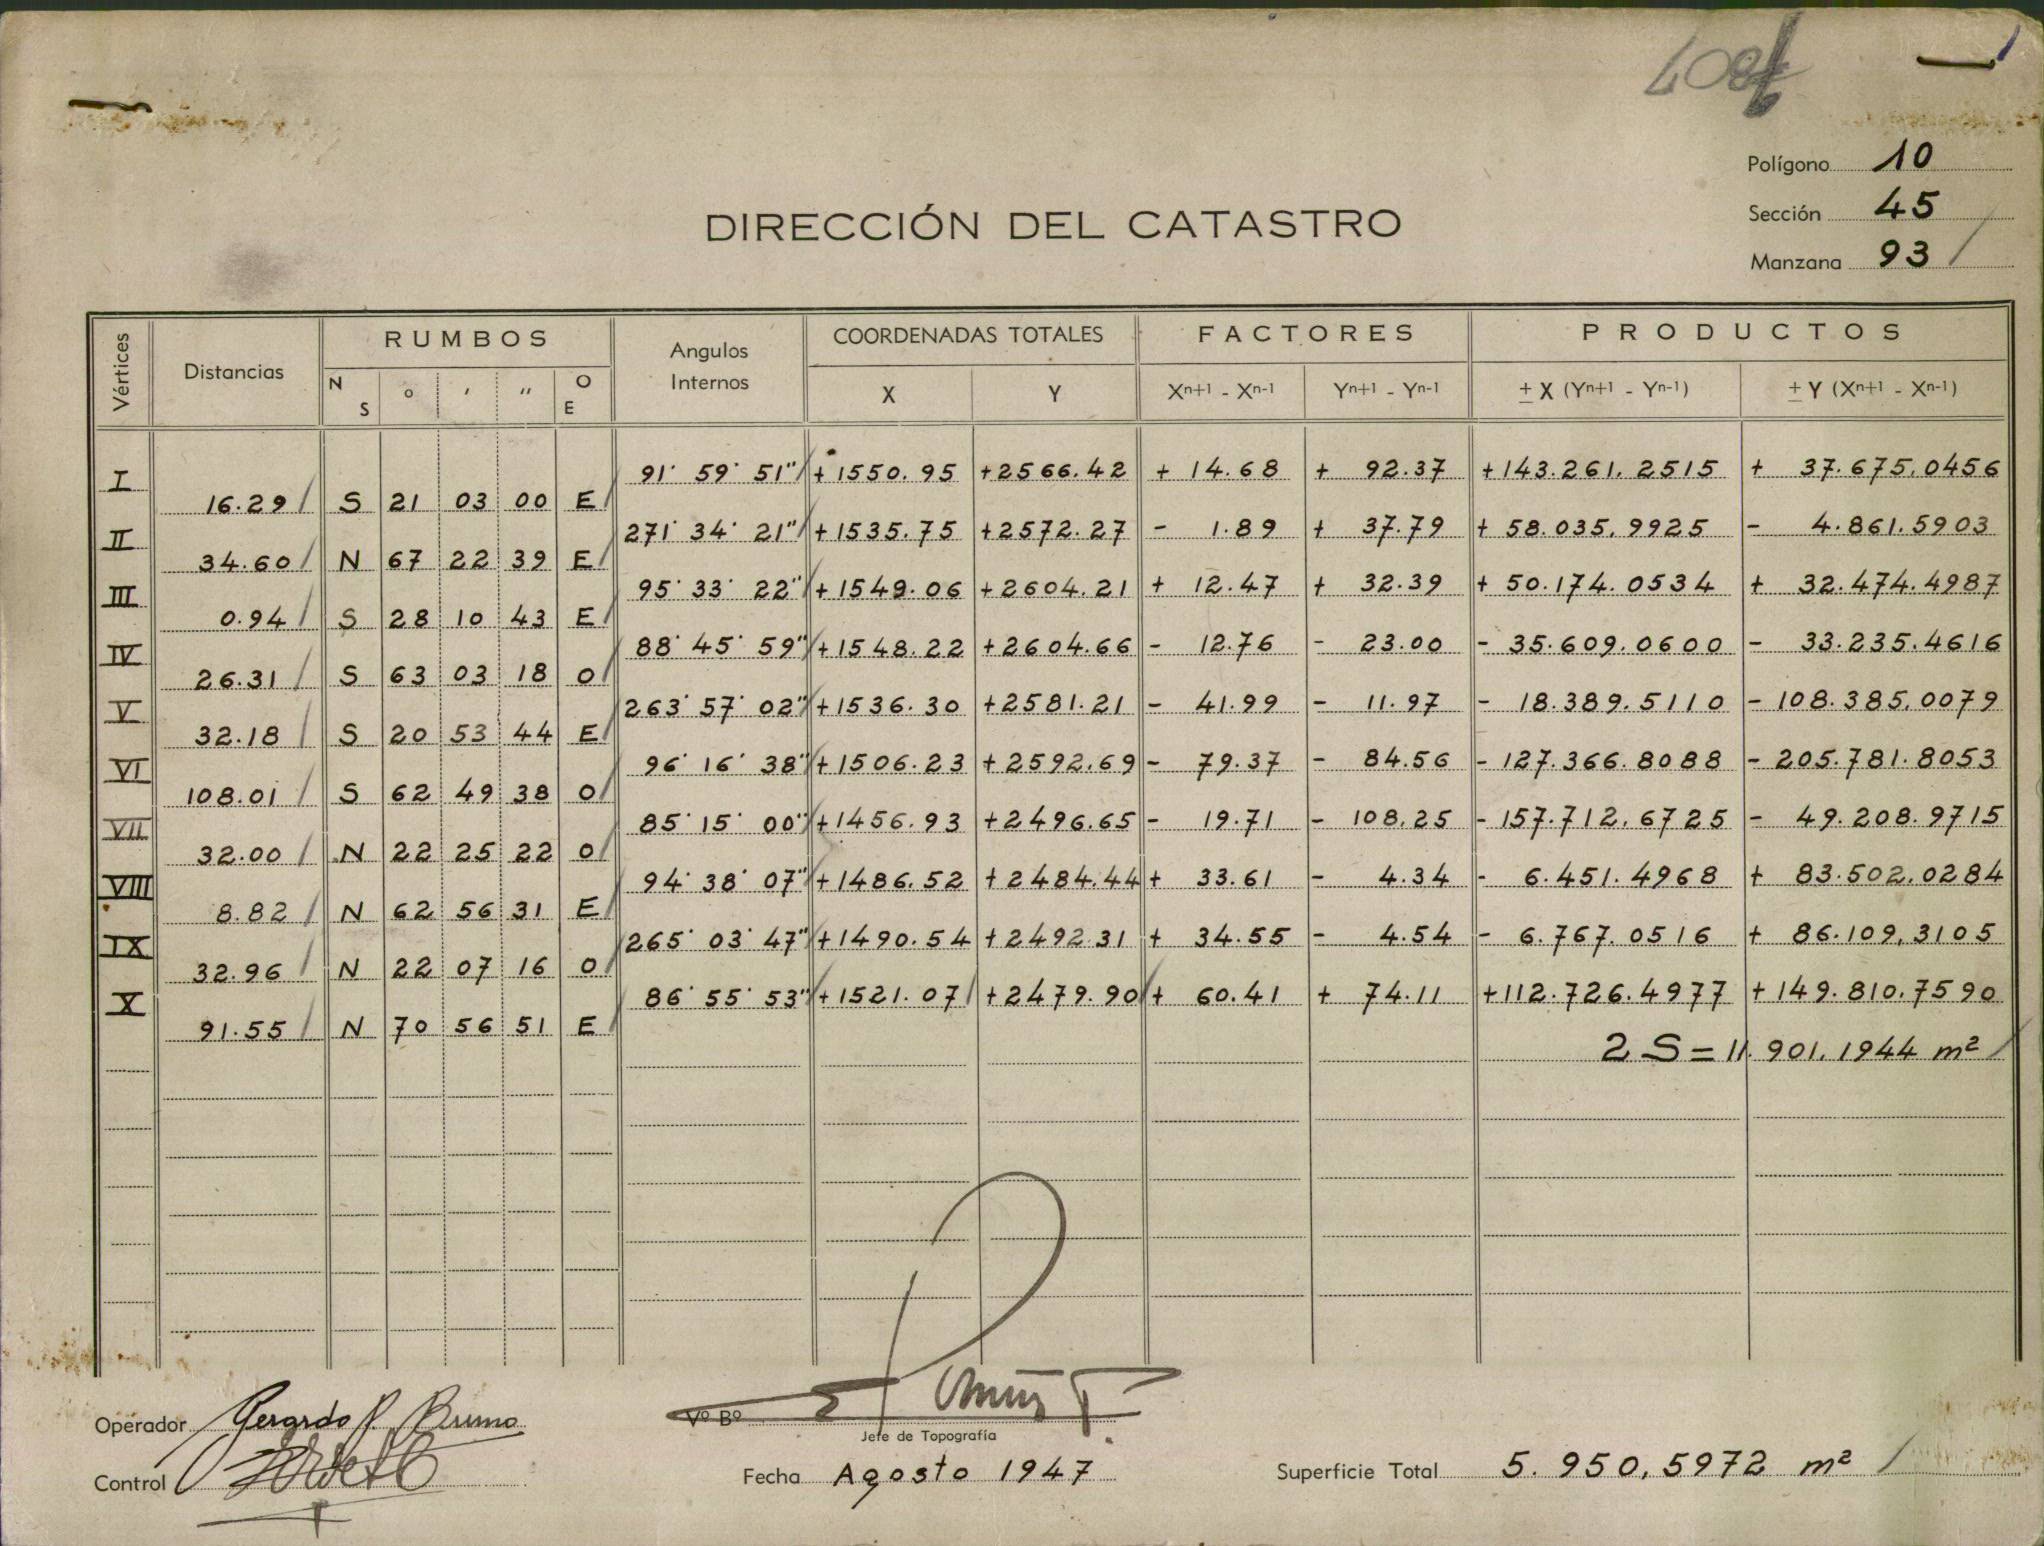 Polígono 10
Sección 45
DIRECCIÓN DEL CATASTRO
Manzana 93
Vértices Distancias RUMBOS Angulos Internos COORDENADAS TOTALES FACTORES PRODUCTOS
N S ° ' '' O E X Y Xn+1 - Xn-1 Yn+1 - Yn-1 ± X (Yn+1 - Yn-1) ± Y (Xn+1 - Xn-1)
I 91° 59' 51" +1550.95 +2566.42 + 14.68 + 92.37 +143.261.2515 + 37.675.0456
16.29 S 21 03 00 E
II 271° 34' 21" +1535.75 +2572.27 - 1.89 + 37.79 + 58.035.9925 - 4.861.5903
34.60 N 67 22 39 E
III 95° 33' 22" +1549.06 +2604.21 + 12.47 + 32.39 + 50.174.0534 + 32.474.4987
0.94 S 28 10 43 E
IV 88° 45' 59" +1548.22 +2604.66 - 12.76 - 23.00 - 35.609.0600 - 33.235.4616
26.31 S 63 03 18 O
V 263° 57' 02" +1536.30 +2581.21 - 41.99 - 11.97 - 18.389.5110 - 108.385.0079
32.18 S 20 53 44 E
VI 96° 16' 38" +1506.23 +2592.69 - 79.37 - 84.56 - 127.366.8088 - 205.781.8053
108.01 S 62 49 38 O
VII 85° 15' 00" +1456.93 +2496.65 - 19.71 - 108.25 - 157.712.6725 - 49.208.9715
32.00 N 22 25 22 O
VIII 94° 38' 07" +1486.52 +2484.44 + 33.61 - 4.34 - 6.451.4968 + 83.502.0284
8.82 N 62 56 31 E
IX 265° 03' 47" +1490.54 +2492.31 + 34.55 - 4.54 - 6.767.0516 + 86.109.3105
32.96 N 22 07 16 O
X 86° 55' 53" +1521.07 +2479.90 + 60.41 + 74.11 +112.726.4977 +149.810.7590
91.55 N 70 56 51 E
2 S = 11.901.1944 m²
Operador Gerardo P. Bruno
Vº Bº
Jefe de Topografía
Control
Fecha Agosto 1947
Superficie Total 5.950,5972 m²